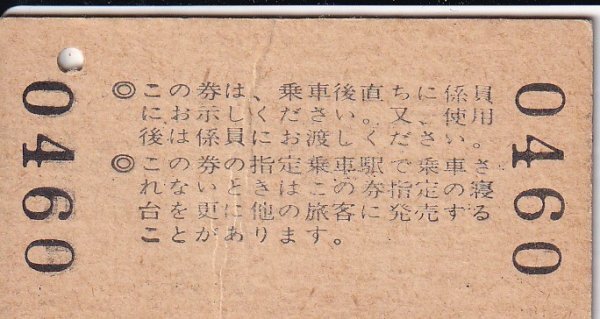 0460
◎この券は、乗車後直ちに係員
にお示しください。又、使用
後は係員にお渡しください。
◎この券の指定乗車駅で乗車さ
れないときはこの券指定の寝
台を更に他の旅客に発売する
ことがあります。
0460